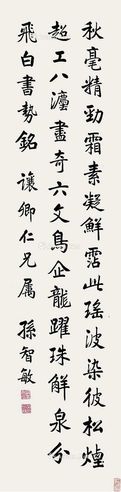 秋毫精勁霜素凝鮮霑此瑤波染彼松煙
超工八法盡奇六文鳥企龍躍珠解泉分
飛白書勢銘　讓卿仁兄屬　孫智敏